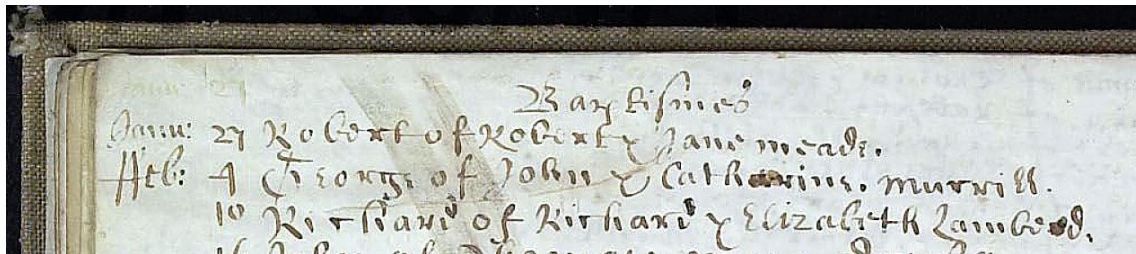 Baptismes
Janu: 27 Robert of Robert & Jane meade.
ffeb: 4 George of John & Catharine Murrill.
10 Richard of Richard & Elizabeth Lamberd.